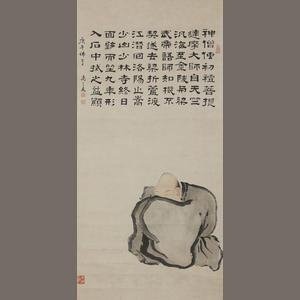 神僧傳初祖菩提
達摩大師自天竺
汎海至金陵與梁
武帝語師知機不
契遂去梁折蘆渡
江潛回洛陽止嵩
少山少林寺終日
面壁而坐九年形
入石中拭之益顯